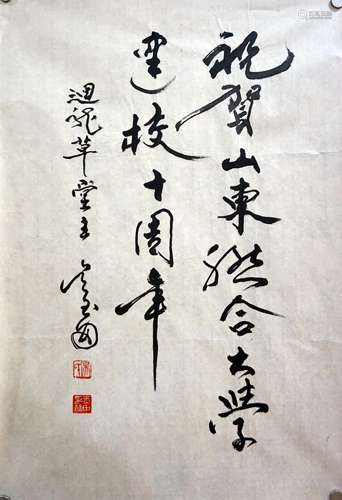 祝賀山東聯合大學
建校十周年
迴龍草堂主